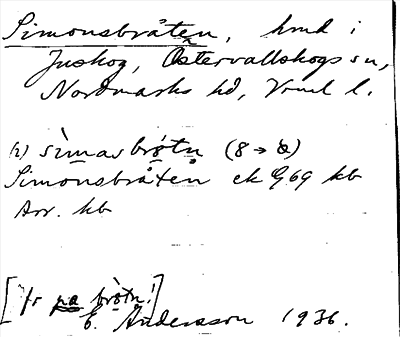 Simonsbråten, hmd i
Juskog, Östervallskogs sn,
Nordmarks hd, Vrml l.
(2) sìmasbrǫtn (8 → ꝋ)
Simonsbråten ek G69 kb
Avr. kb
[Fr på brǫ̀tn!]
E. Andersson 1936.